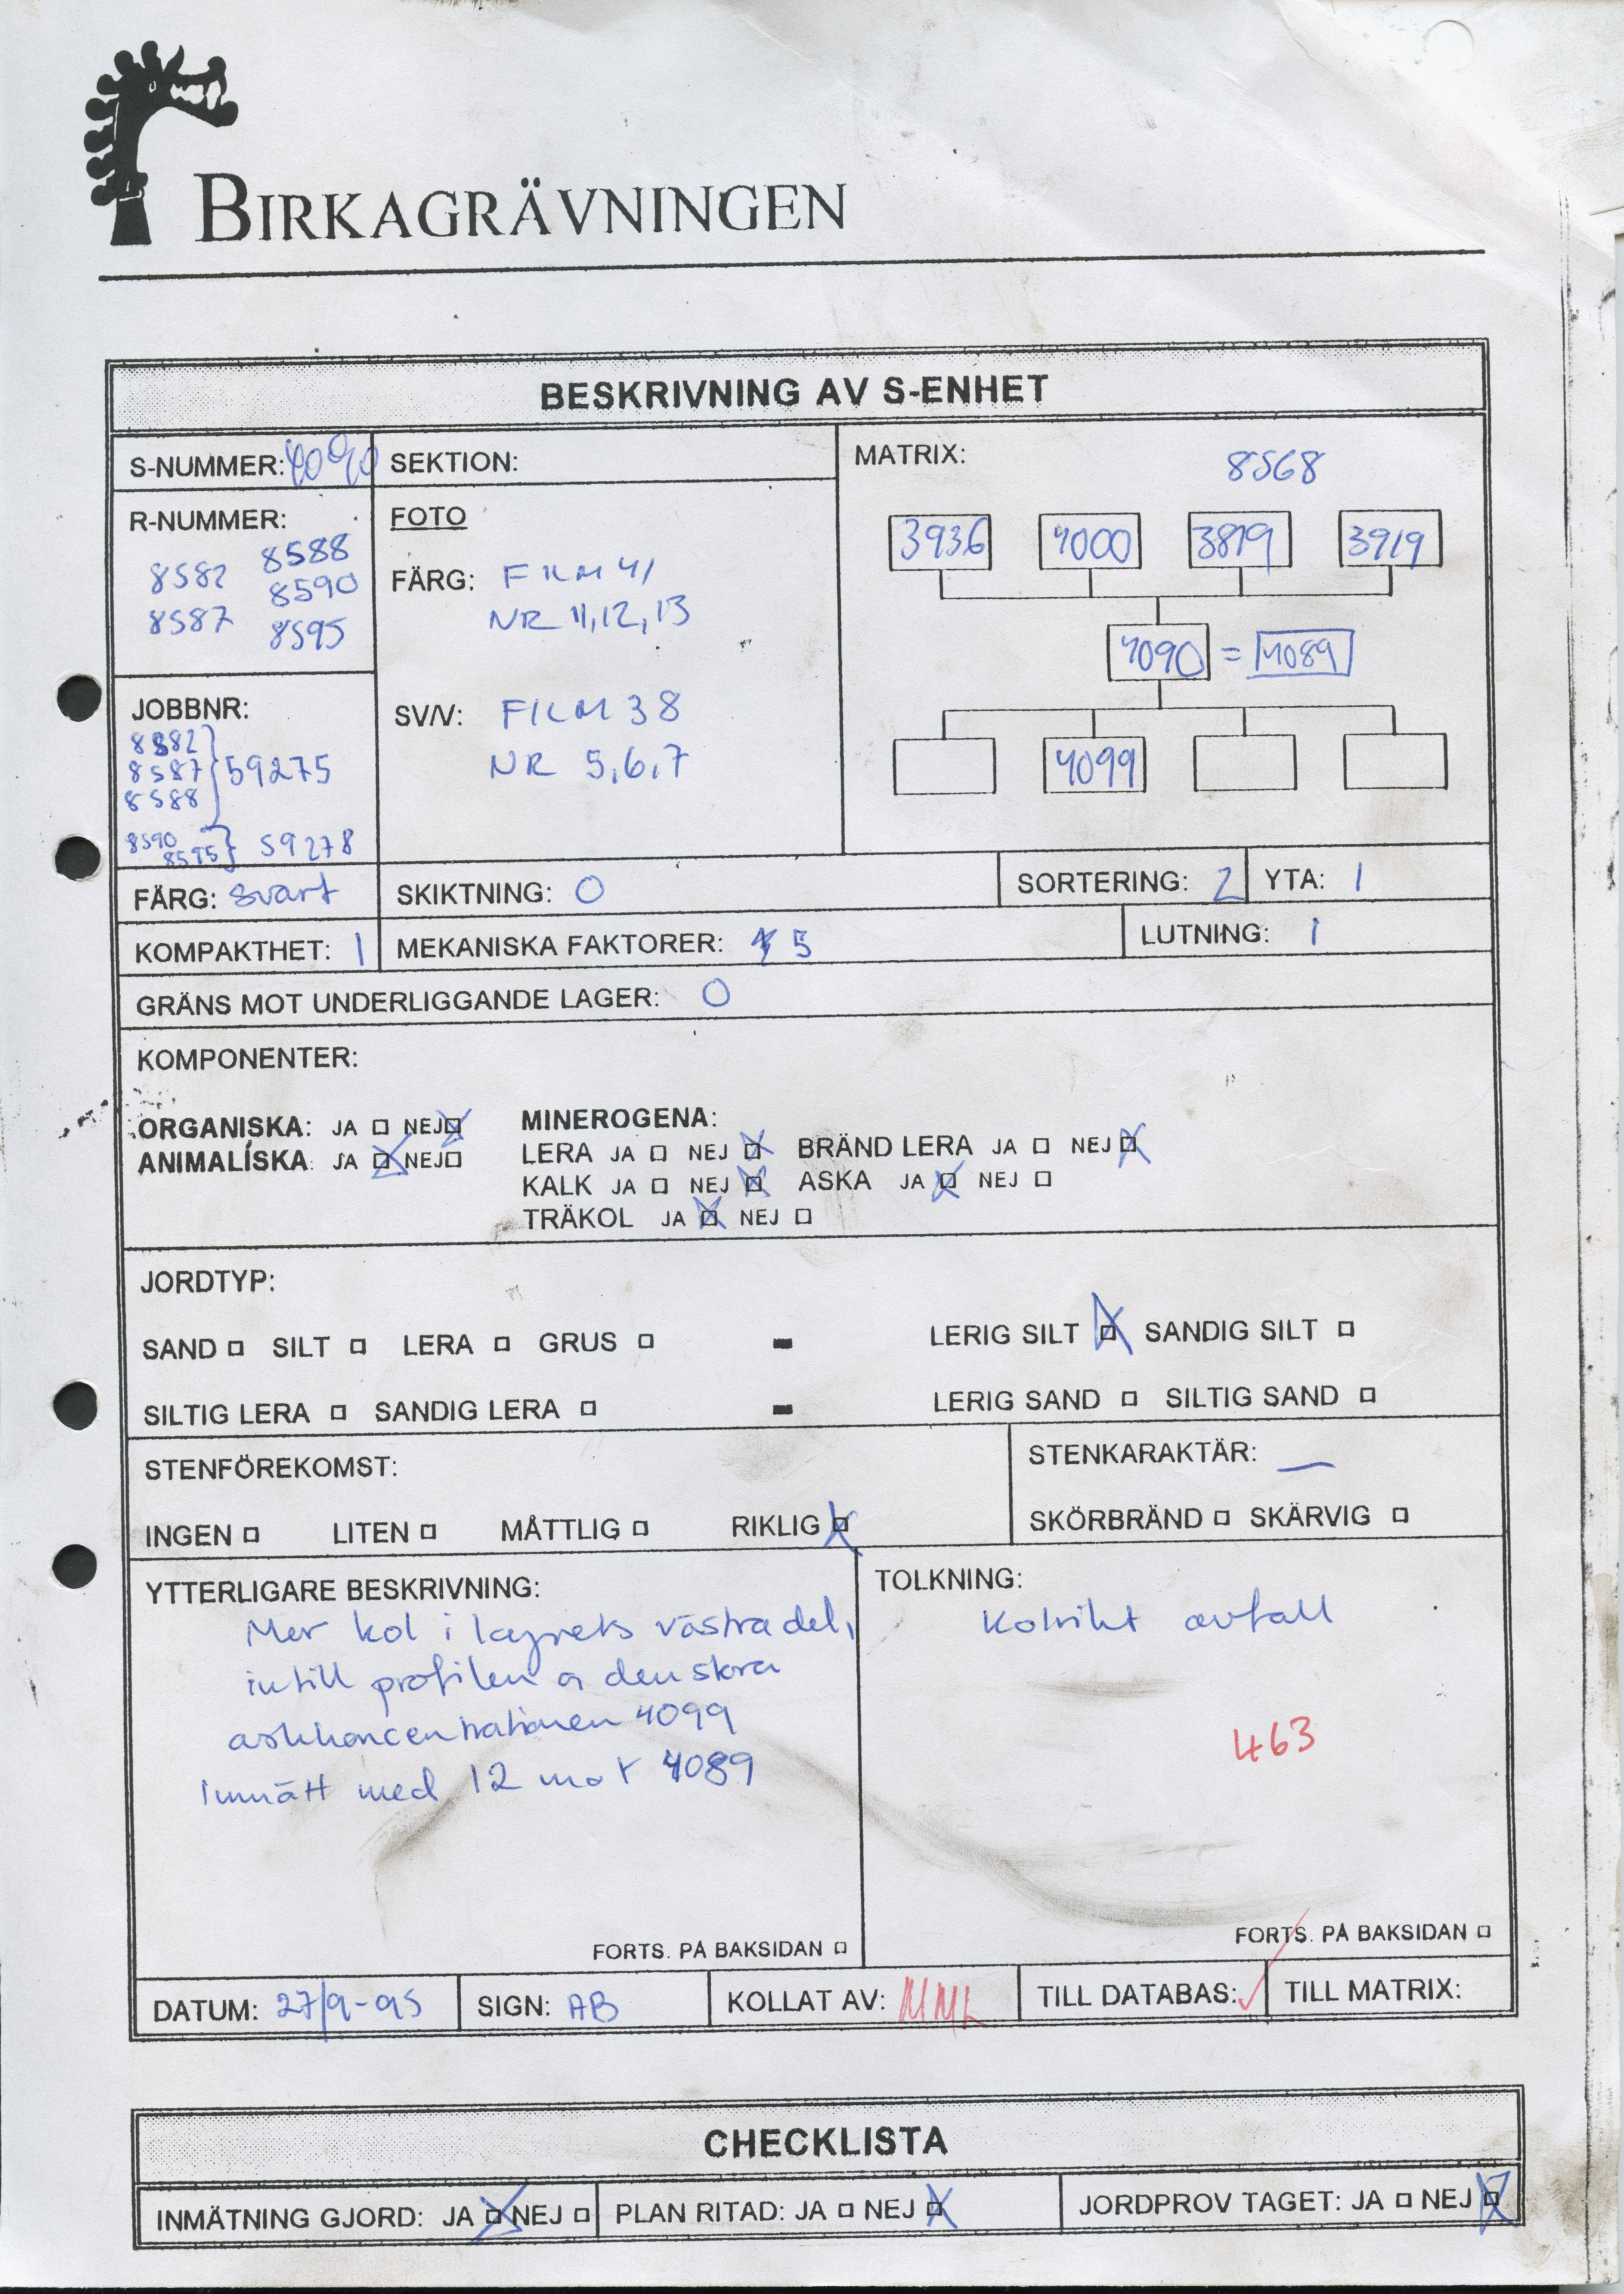 BIRKAGRÄVNINGEN
BESKRIVNING AV S-ENHET
S-NUMMER: 4090
SEKTION:
MATRIX:
8568
R-NUMMER:
8582 8588
8590
8587 8595
FOTO
FÄRG: FILM 41
NR 11,12,13
SV/V: FILM 38
NR 5,6,7
3936 4000 3819 3919
4090 = 4089
4099
JOBBNR:
8582
8587 } 59275
8588
8590
8595 } 59278
FÄRG: svart
SKIKTNING: 0
SORTERING: 2
YTA: 1
KOMPAKTHET: 1
MEKANISKA FAKTORER: 5
LUTNING: 1
GRÄNS MOT UNDERLIGGANDE LAGER: 0
KOMPONENTER:
ORGANISKA: JA □ NEJ ☒
ANIMALISKA: JA ☒ NEJ □
MINEROGENA:
LERA JA □ NEJ ☒ BRÄND LERA JA □ NEJ ☒
KALK JA □ NEJ ☒ ASKA JA ☒ NEJ □
TRÄKOL JA ☒ NEJ □
JORDTYP:
SAND □ SILT □ LERA □ GRUS □ - LERIG SILT ☒ SANDIG SILT □
SILTIG LERA □ SANDIG LERA □ - LERIG SAND □ SILTIG SAND □
STENFÖREKOMST:
INGEN □ LITEN □ MÅTTLIG □ RIKLIG ☒
STENKARAKTÄR: —
SKÖRBRÄND □ SKÄRVIG □
YTTERLIGARE BESKRIVNING:
Mer kol i lagrets västra del,
intill profilen o den stora
askkoncentrationen 4099
Inmätt med 12 mot 4089
FORTS. PÅ BAKSIDAN □
TOLKNING:
Kolrikt avfall
463
FORTS. PÅ BAKSIDAN □
DATUM: 27/9-95
SIGN: AB
KOLLAT AV: MML
TILL DATABAS: ✓
TILL MATRIX:
CHECKLISTA
INMÄTNING GJORD: JA ☒ NEJ □
PLAN RITAD: JA □ NEJ ☒
JORDPROV TAGET: JA □ NEJ ☒